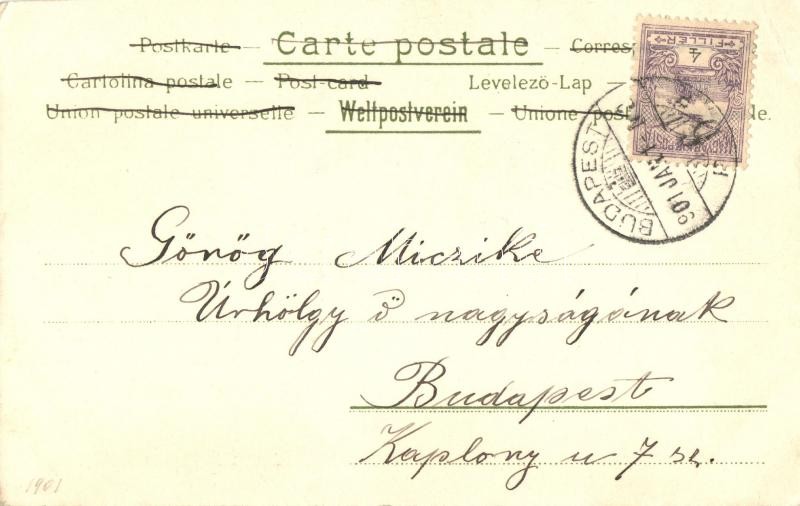 Postkarte — Carte postale — Corres
Cartolina postale — Post-card Levelező-Lap —
Union postale universelle — Weltpostverein — Unione postale de.
4
FILLÉR
BUDAPEST
901 JAN
Görög Miczike
Úrhölgy ő nagyságának
Budapest
Kaplony u 7 sz.
1901